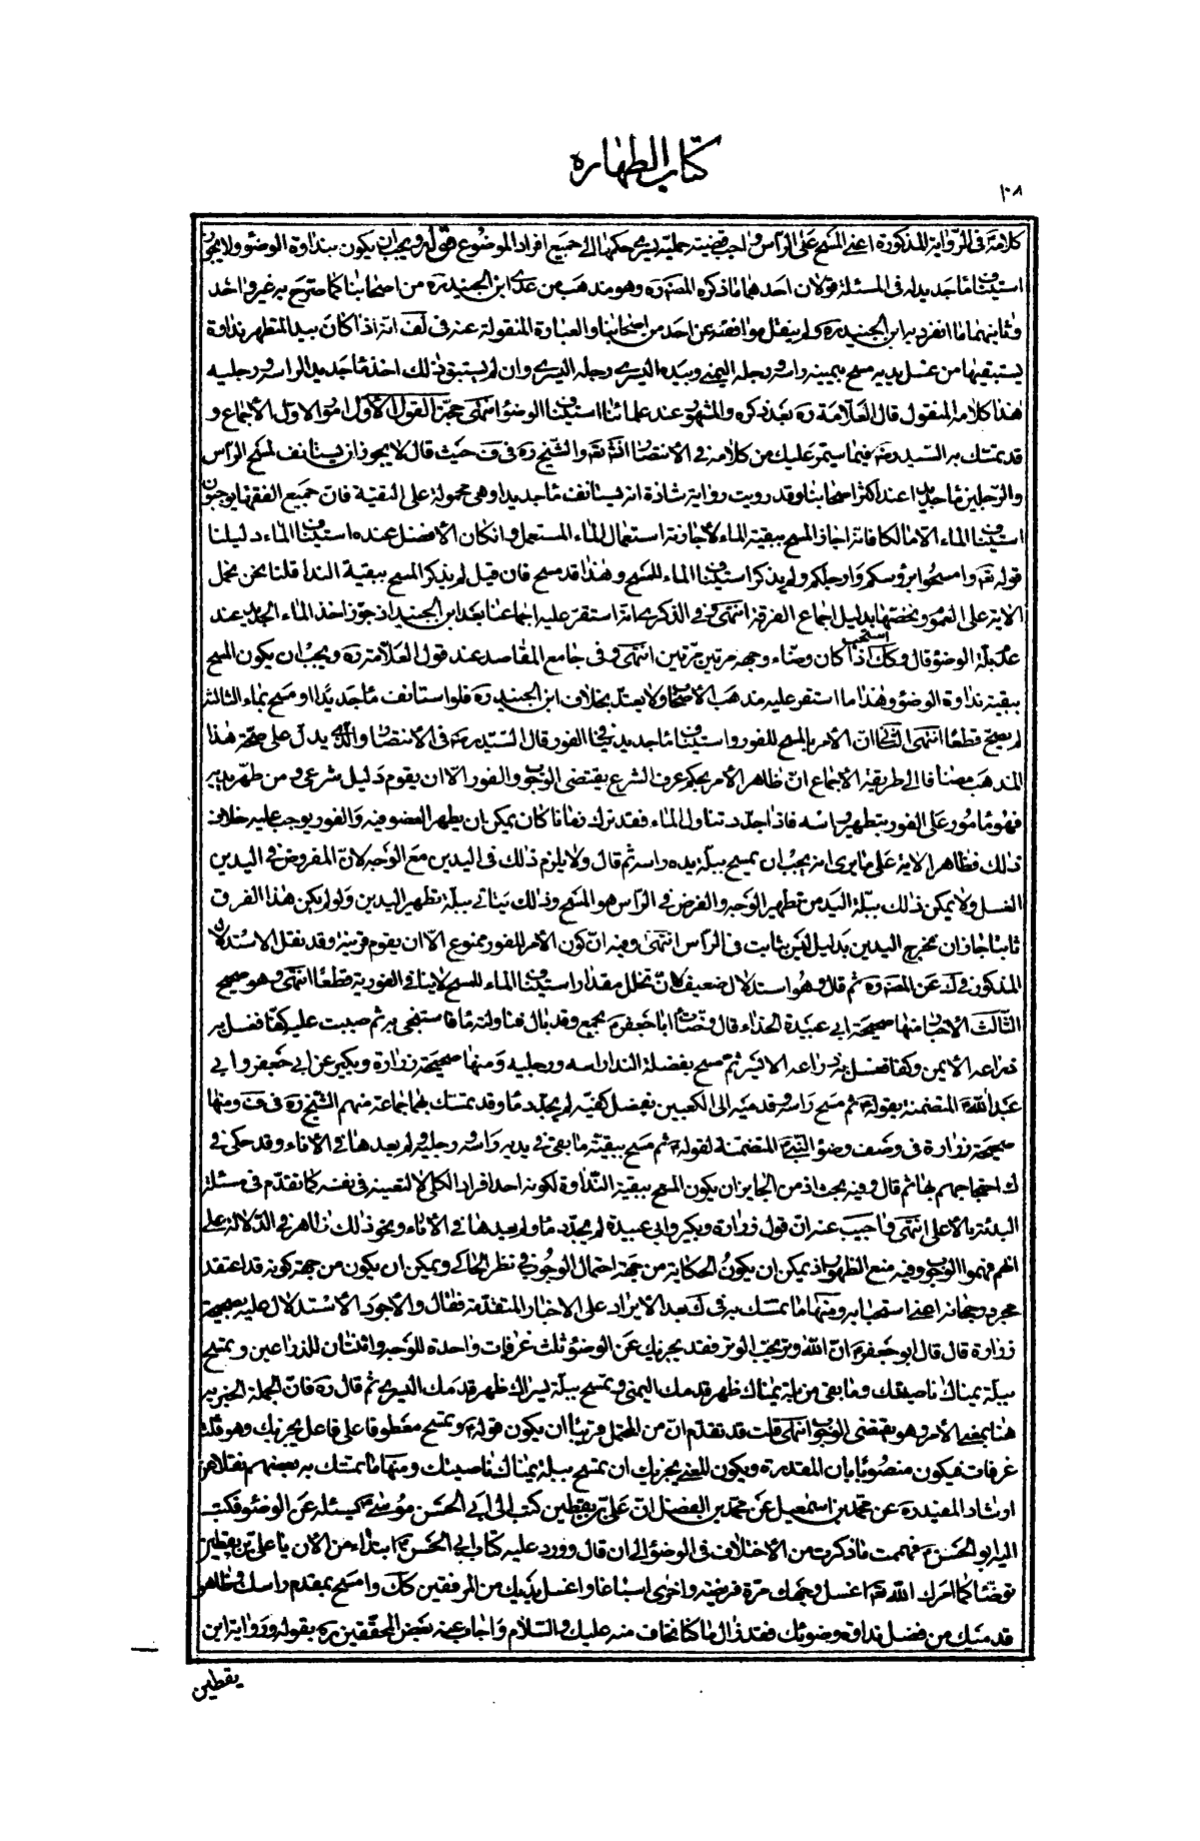 كتاب الطهاره
١٠٨
كلامه فى الرّواية المذكورة اعنى المسح على الرأس واجب قضية حملية يسرى حكمها الى جميع افراد الموضوع قوله ويجب ان يكون بنداوة الوضوء ولا يجوز
استيناف ماء جديد له فى المسئلة قولان احدهما ما ذكره المصنف ره وهو مذهب من عدا ابن الجنيد ره من اصحابنا كما صرّح به غير واحد
وثانيهما ما انفرد به ابن الجنيد ره ولم ينقل موافقته عن احد من اصحابنا والعبارة المنقولة عنه فى لف انّه اذا كان بيد المتطهر نداوة
يستبقيها من غسل يديه مسح بيمينه راسه ورجله اليمنى وبيده اليسرى رجله اليسرى وان لم يستبق ذلك اخذ ماء جديدا لراسه ورجليه
هذا كلامه المنقول قال العلّامة ره بعد ذكره والمشهور عند علمائنا استيناف الوضوء انتهى حجة القول الأوّل امور الاوّل الأجماع و
قد تمسّك به السّيد ره فيما سيتمر عليك من كلامه فى الأنتصار انش تعه والشّيخ ره فى ف حيث قال لا يجوز ان يستانف لمسح الرّأس
والرّجلين ماء جديدا عند اكثر اصحابنا وقد رويت رواية شاذة انّه يستانف ماء جديدا وهى محمولة على التقية فانّ جميع الفقهاء يوجبون
استيناف الماء الا مالكا فانّه اجاز المسح ببقية الماء لأجازته استعمال الماء المستعمل وان كان الأفضل عنده استيناف الماء دليلنا
قوله تعه وامسحوا برؤسكم وارجلكم ولم يذكر استيناف الماء للمسح وهذا قد مسح فان قيل لم يذكر المسح ببقية الندا قلنا نحن نحمل
الاية على العموم ونخصّها بدليل اجماع الفرقة انتهى وفى الذكرى انه استقر عليه اجماعنا بعد ابن الجنيد اذ جوّز اخذ الماء الجديد عند
عدم بلّة الوضوء قال وكك اذا كان وضّاء وجهه مرتين مرّتين انتهى وفى جامع المقاصد عند قول العلّامة ره ويجب ان يكون المسح
ببقية نداوة الوضوء وهذا ما استقر عليه مذهب الأصحاب ولا يعتد بخلاف ابن الجنيد ره فلو استانف ماء جديدا او مسح بماء الثالثة
لم يصح قطعا انتهى الثانى انّ الأمر بالمسح للفور واستيناف ماء جديد ينافى الفور قال السّيد ره فى الأنتصار والّذى يدلّ على صحّة هذا
المذهب مضافا الى طريقة الأجماع انّ ظاهر الأمر بحكم عرف الشرع يقتضى الوجوب والفور الّا ان يقوم دليل شرعى ومن طهّر يديه
فهو مامور على الفور بتطهير راسه فاذا جدّد تناول الماء فقد ترك زمانا كان يمكن ان يطهر العضو فيه والفور يوجب عليه خلاف
ذلك فظاهر الاية على ما يرى انّه يجب ان يمسح ببلّة يده راسه ثم قال ولا يلزم ذلك فى اليدين مع الوجه لانّ المفروض فى اليدين
الغسل ولا يمكن ذلك ببلّة اليد من تطهير الوجه والفرض فى الرّاس هو المسح وذلك يتاتى ببلّة تطهير اليدين ولو لم يكن هذا الفرق
ثابتا جاز ان يخرج اليدين بدليل ليس بثابت فى الرّأس انتهى وفيه انّ كون الأمر للفور ممنوع الّا ان يقوم قرينة وقد نقل الاستدلال
المذكور فى ك عن المصنف ره ثم قال وهو استدلال ضعيف لانّ تخلل مقدار استيناف الماء للمسح لا ينافى الفورية قطعا انتهى وهو صحيح
الثّالث الأخبار منها صحيحة ابى عبيدة الحذاء قال وضّات ابا جعفر ع بجمع وقد بال فناولته ماء فاستنجى به ثم صببت عليه كفّا فغسل به
ذراعه الأيمن وكفا فغسل به ذراعه الايسر ثم مسح بفضلة الندا راسه ورجليه ومنها صحيحة زرارة وبكير عن ابى جعفر وابى
عبد اللّه ع المتضمنة بقوله ثم مسح راسه وقدميه الى الكعبين بفضل كفيه لم يجدّد ماء وقد تمسّك بهما جماعة منهم الشّيخ ره فى ف ومنها
صحيحة زرارة فى وصف وضوء النّبى ص المتضمنة لقوله ثم مسح ببقية ما بقى فى يديه راسه ورجليه ولم يعدهما فى الاناء وقد حكى فى
ك احتجاجهم بها ثم قال وفيه بحث اذ من الجايز ان يكون المسح ببقية النّداوة لكونه احد افراد الكلى لا لتعينه فى نفسه كما تقدّم فى مسئلة
البدئة بالاعلى انتهى واجيب عنه ان قول زرارة وبكير وابى عبيدة لم يجدّد ماء ولم يعدهما فى الاناء ونحو ذلك ظاهر فى الدّلالة على
انهم فهموا الوجوب وفيه منع الظهور اذ يمكن ان يكون الحكاية من جهة احتمال الوجوب فى نظر الحاكى ويمكن ان يكون من جهة كونه قد اعتقد
مجرد رجحانه اعنى استحبابه ومنها ما تمسّك به فى ك بعد الايراد على الاخبار المتقدّمة فقال والأجود الأستدلال عليه بصحيحة
زرارة قال قال ابو جعفر ع انّ اللّه وتر يحبّ الوتر فقد يجزيك عن الوضوء ثلث غرفات واحدة للوجه واثنتان للذراعين وتمسح
ببلّة يمناك ناصيتك وما بقى من بلّة يمناك ظهر قدمك اليمنى وتمسح ببلّة يسراك ظهر قدمك اليسرى ثم قال ره فانّ الجملة الخبرية
هنا بمعنى الأمر وهو يقتضى الوجوب انتهى قلت قد تقدّم انّ من المحتمل قريبا ان يكون قوله وتمسح معطوفا على فاعل يجزيك وهو ثلث
غرفات فيكون منصوبا بان المقدرة ويكون المعنى يجزيك ان تمسح ببلّة يمناك ناصيتك ومنها ما تمسّك به بعضهم نقلا عن
ارشاد المفيد ره عن محمّد بن اسمعيل عن محمّد بن الفضل ان علىّ بن يقطين كتب الى ابى الحسن موسى ع يسئله عن الوضوء فكتب
اليه ابو الحسن ع فهمت ما ذكرت من الأختلاف فى الوضوء الى ان قال وورد عليه كتاب ابى الحسن ع ابتداء من الان يا علىّ بن يقطين
توضّا كما امرك اللّه تعه اغسل وجهك مرّة فريضة واخرى اسباغا واغسل يديك من المرفقين كك وامسح بمقدم راسك وظاهر
قدميك من فضل نداوة وضوئك فقد زال ما كنّا نخاف منه عليك والسّلام واجاب عنه بعض المحقّقين ره بقوله ورواية ابن
يقطين
استحب